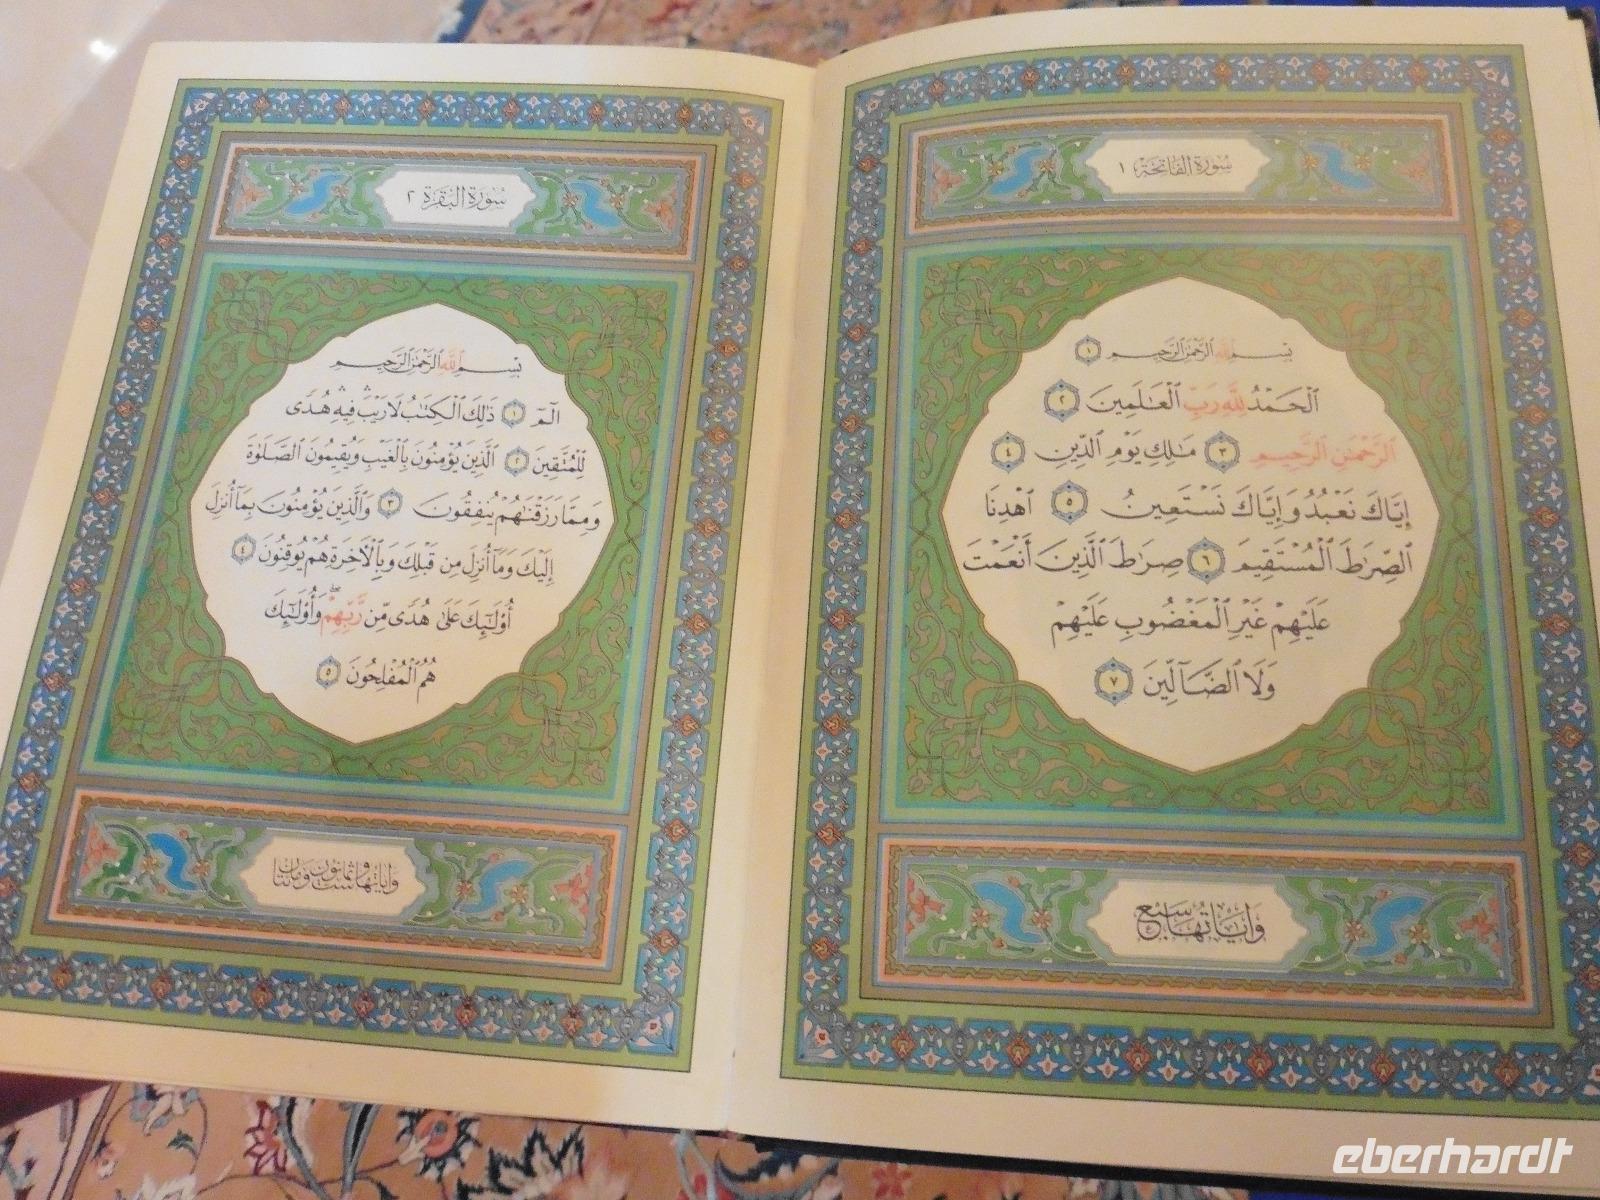 سُورَةُ الفَاتِحَة ١
بِسْمِ ٱللَّهِ ٱلرَّحْمَٰنِ ٱلرَّحِيمِ ١
ٱلْحَمْدُ لِلَّهِ رَبِّ ٱلْعَٰلَمِينَ ٢
ٱلرَّحْمَٰنِ ٱلرَّحِيمِ ٣ مَٰلِكِ يَوْمِ ٱلدِّينِ ٤
إِيَّاكَ نَعْبُدُ وَإِيَّاكَ نَسْتَعِينُ ٥ ٱهْدِنَا
ٱلصِّرَٰطَ ٱلْمُسْتَقِيمَ ٦ صِرَٰطَ ٱلَّذِينَ أَنْعَمْتَ
عَلَيْهِمْ غَيْرِ ٱلْمَغْضُوبِ عَلَيْهِمْ
وَلَا ٱلضَّآلِّينَ ٧
وَآيَاتُهَا سَبْعٌ
سُورَةُ البَقَرَة ٢
بِسْمِ ٱللَّهِ ٱلرَّحْمَٰنِ ٱلرَّحِيمِ
الٓمٓ ١ ذَٰلِكَ ٱلْكِتَٰبُ لَا رَيْبَۛ فِيهِۛ هُدًى
لِّلْمُتَّقِينَ ٢ ٱلَّذِينَ يُؤْمِنُونَ بِٱلْغَيْبِ وَيُقِيمُونَ ٱلصَّلَوٰةَ
وَمِمَّا رَزَقْنَٰهُمْ يُنفِقُونَ ٣ وَٱلَّذِينَ يُؤْمِنُونَ بِمَآ أُنزِلَ
إِلَيْكَ وَمَآ أُنزِلَ مِن قَبْلِكَ وَبِٱلْءَاخِرَةِ هُمْ يُوقِنُونَ ٤
أُو۟لَٰٓئِكَ عَلَىٰ هُدًى مِّن رَّبِّهِمْۖ وَأُو۟لَٰٓئِكَ
هُمُ ٱلْمُفْلِحُونَ ٥
وَآيَاتُهَا سِتٌّ وَثَمَانُونَ وَمَائَتَانِ
eberhardt